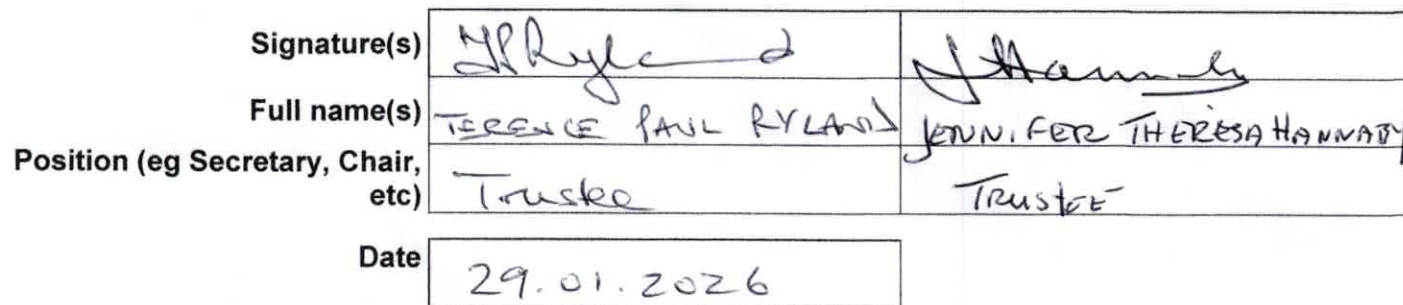 Signature(s) TPRyland J Hannaby
Full name(s) TERENCE PAUL RYLAND JENNIFER THERESA HANNABY
Position (eg Secretary, Chair,
etc) Trustee TRUSTEE
Date 29.01.2026